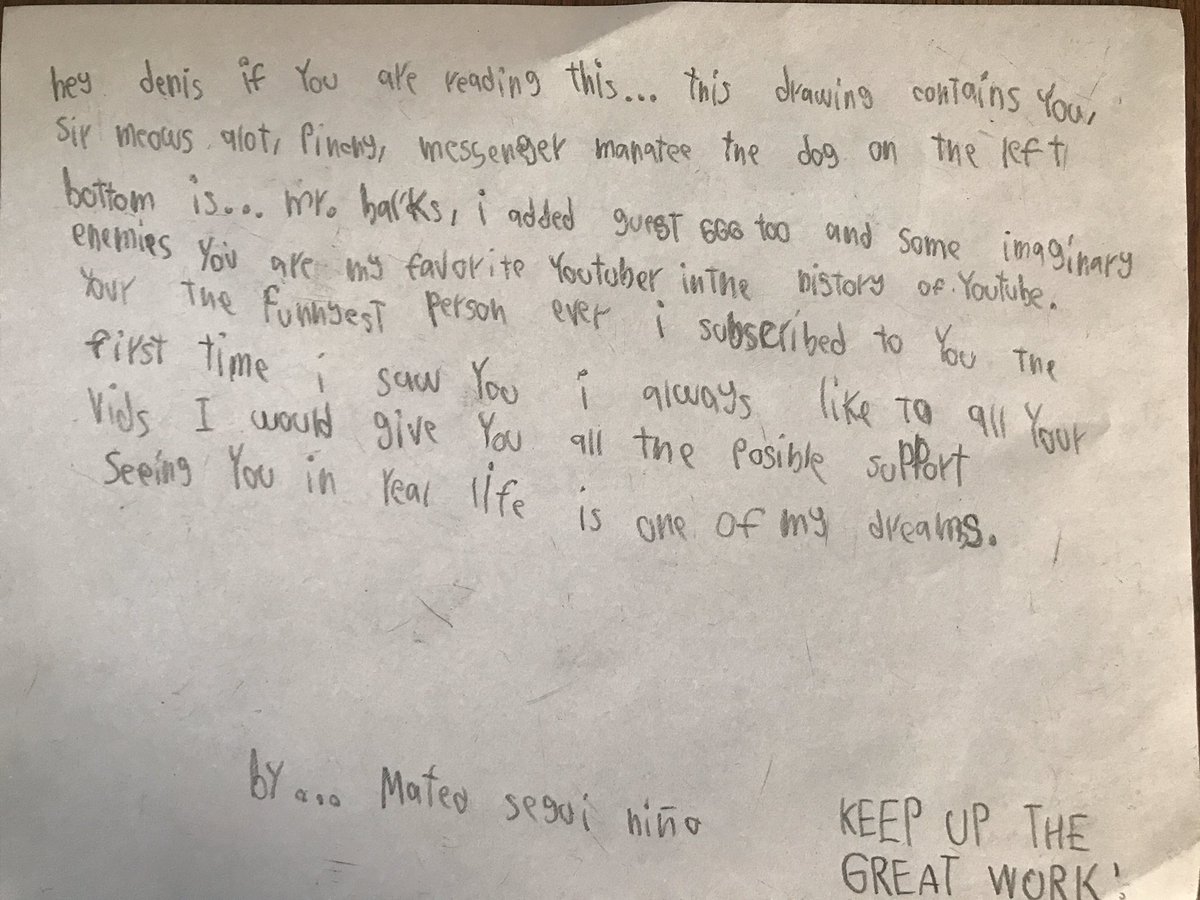 hey denis if You are reading this... this drawing contains You,
Sir meows alot, Pinchy, messenger manatee the dog on the left
bottom is... mr. barks, i added guest 666 too and some imaginary
enemies You are my favorite Youtuber in the history of Youtube.
Your the funnyest person ever i subscribed to You the
first time i saw You i always like to all Your
Vids I would give You all the posible support
Seeing You in real life is one of my dreams.
by... Mateo segui niño
KEEP UP THE
GREAT WORK!